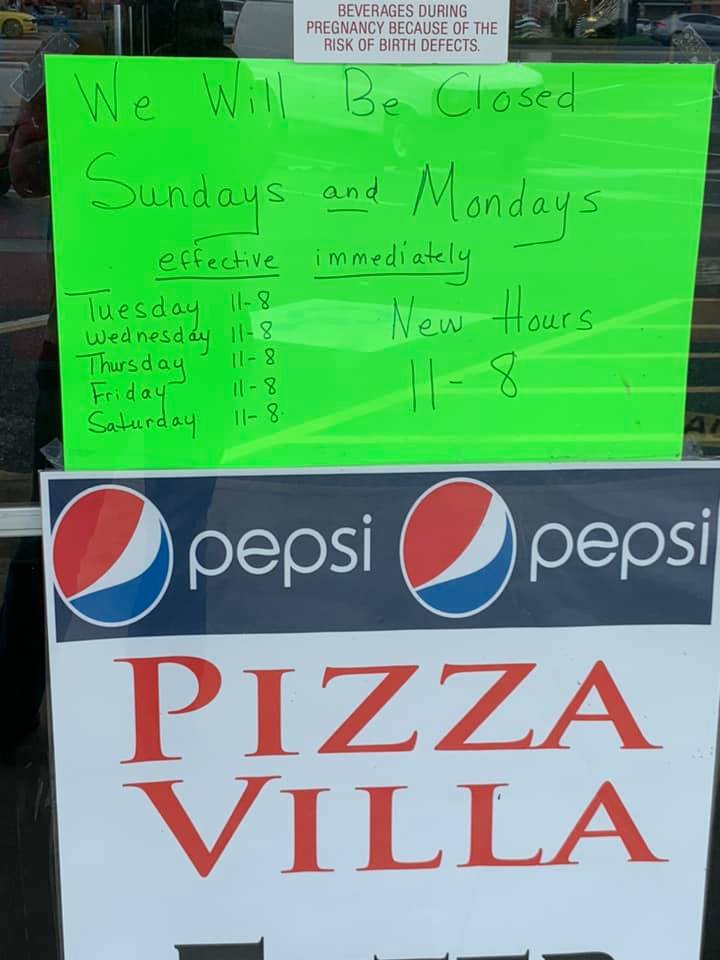 BEVERAGES DURING
PREGNANCY BECAUSE OF THE
RISK OF BIRTH DEFECTS.
We Will Be Closed
Sundays and Mondays
effective immediately
Tuesday 11-8
Wednesday 11-8
Thursday 11-8
Friday 11-8
Saturday 11-8.
New Hours
11-8
pepsi pepsi
PIZZA
VILLA